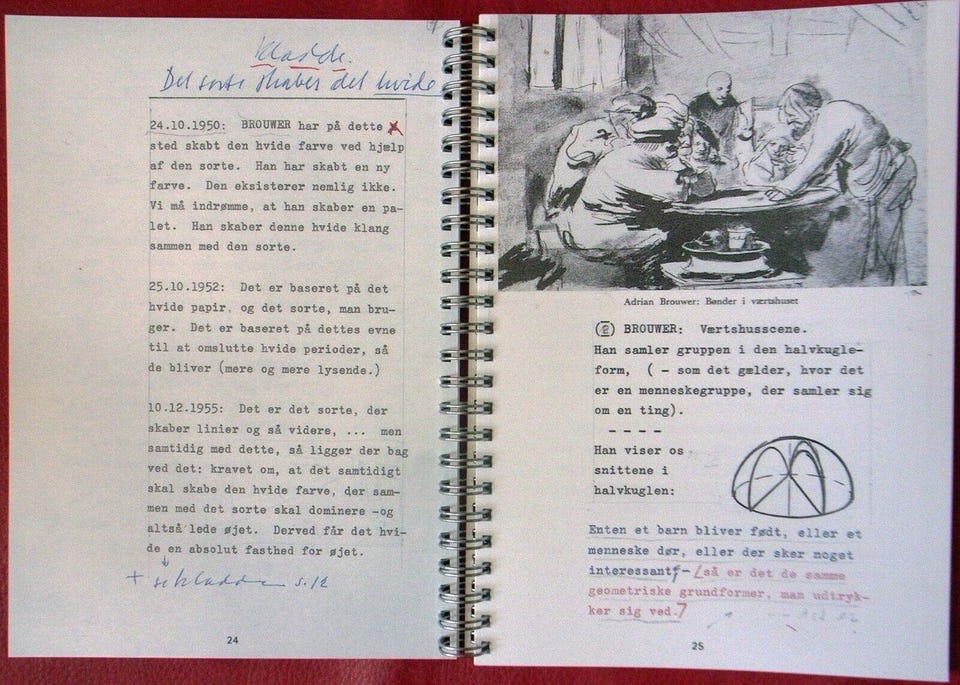 kladde.
Det sorte skaber det hvide
24.10.1950: BROUWER har på dette
sted skabt den hvide farve ved hjælp
af den sorte. Han har skabt en ny
farve. Den eksisterer nemlig ikke.
Vi må indrømme, at han skaber en pa-
let. Han skaber denne hvide klang
sammen med den sorte.
25.10.1952: Det er baseret på det
hvide papir, og det sorte, man bru-
ger. Det er baseret på dettes evne
til at omslutte hvide perioder, så
de bliver (mere og mere lysende.)
10.12.1955: Det er det sorte, der
skaber linier og så videre, ... men
samtidig med dette, så ligger der bag
ved det: kravet om, at det samtidigt
skal skabe den hvide farve, der sam-
men med det sorte skal dominere -og
altså lede øjet. Derved får det hvi-
de en absolut fasthed for øjet.
+ se kladden s. 12
24
Adrian Brouwer: Bønder i værtshuset
(2) BROUWER: Værtshusscene.
Han samler gruppen i den halvkugle-
form, ( - som det gælder, hvor det
er en menneskegruppe, der samler sig
om en ting).
- - - -
Han viser os
snittene i
halvkuglen:
Enten et barn bliver født, eller et
menneske dør, eller der sker noget
interessant - (så er det de samme
geometriske grundformer, man udtryk-
ker sig ved.)
25